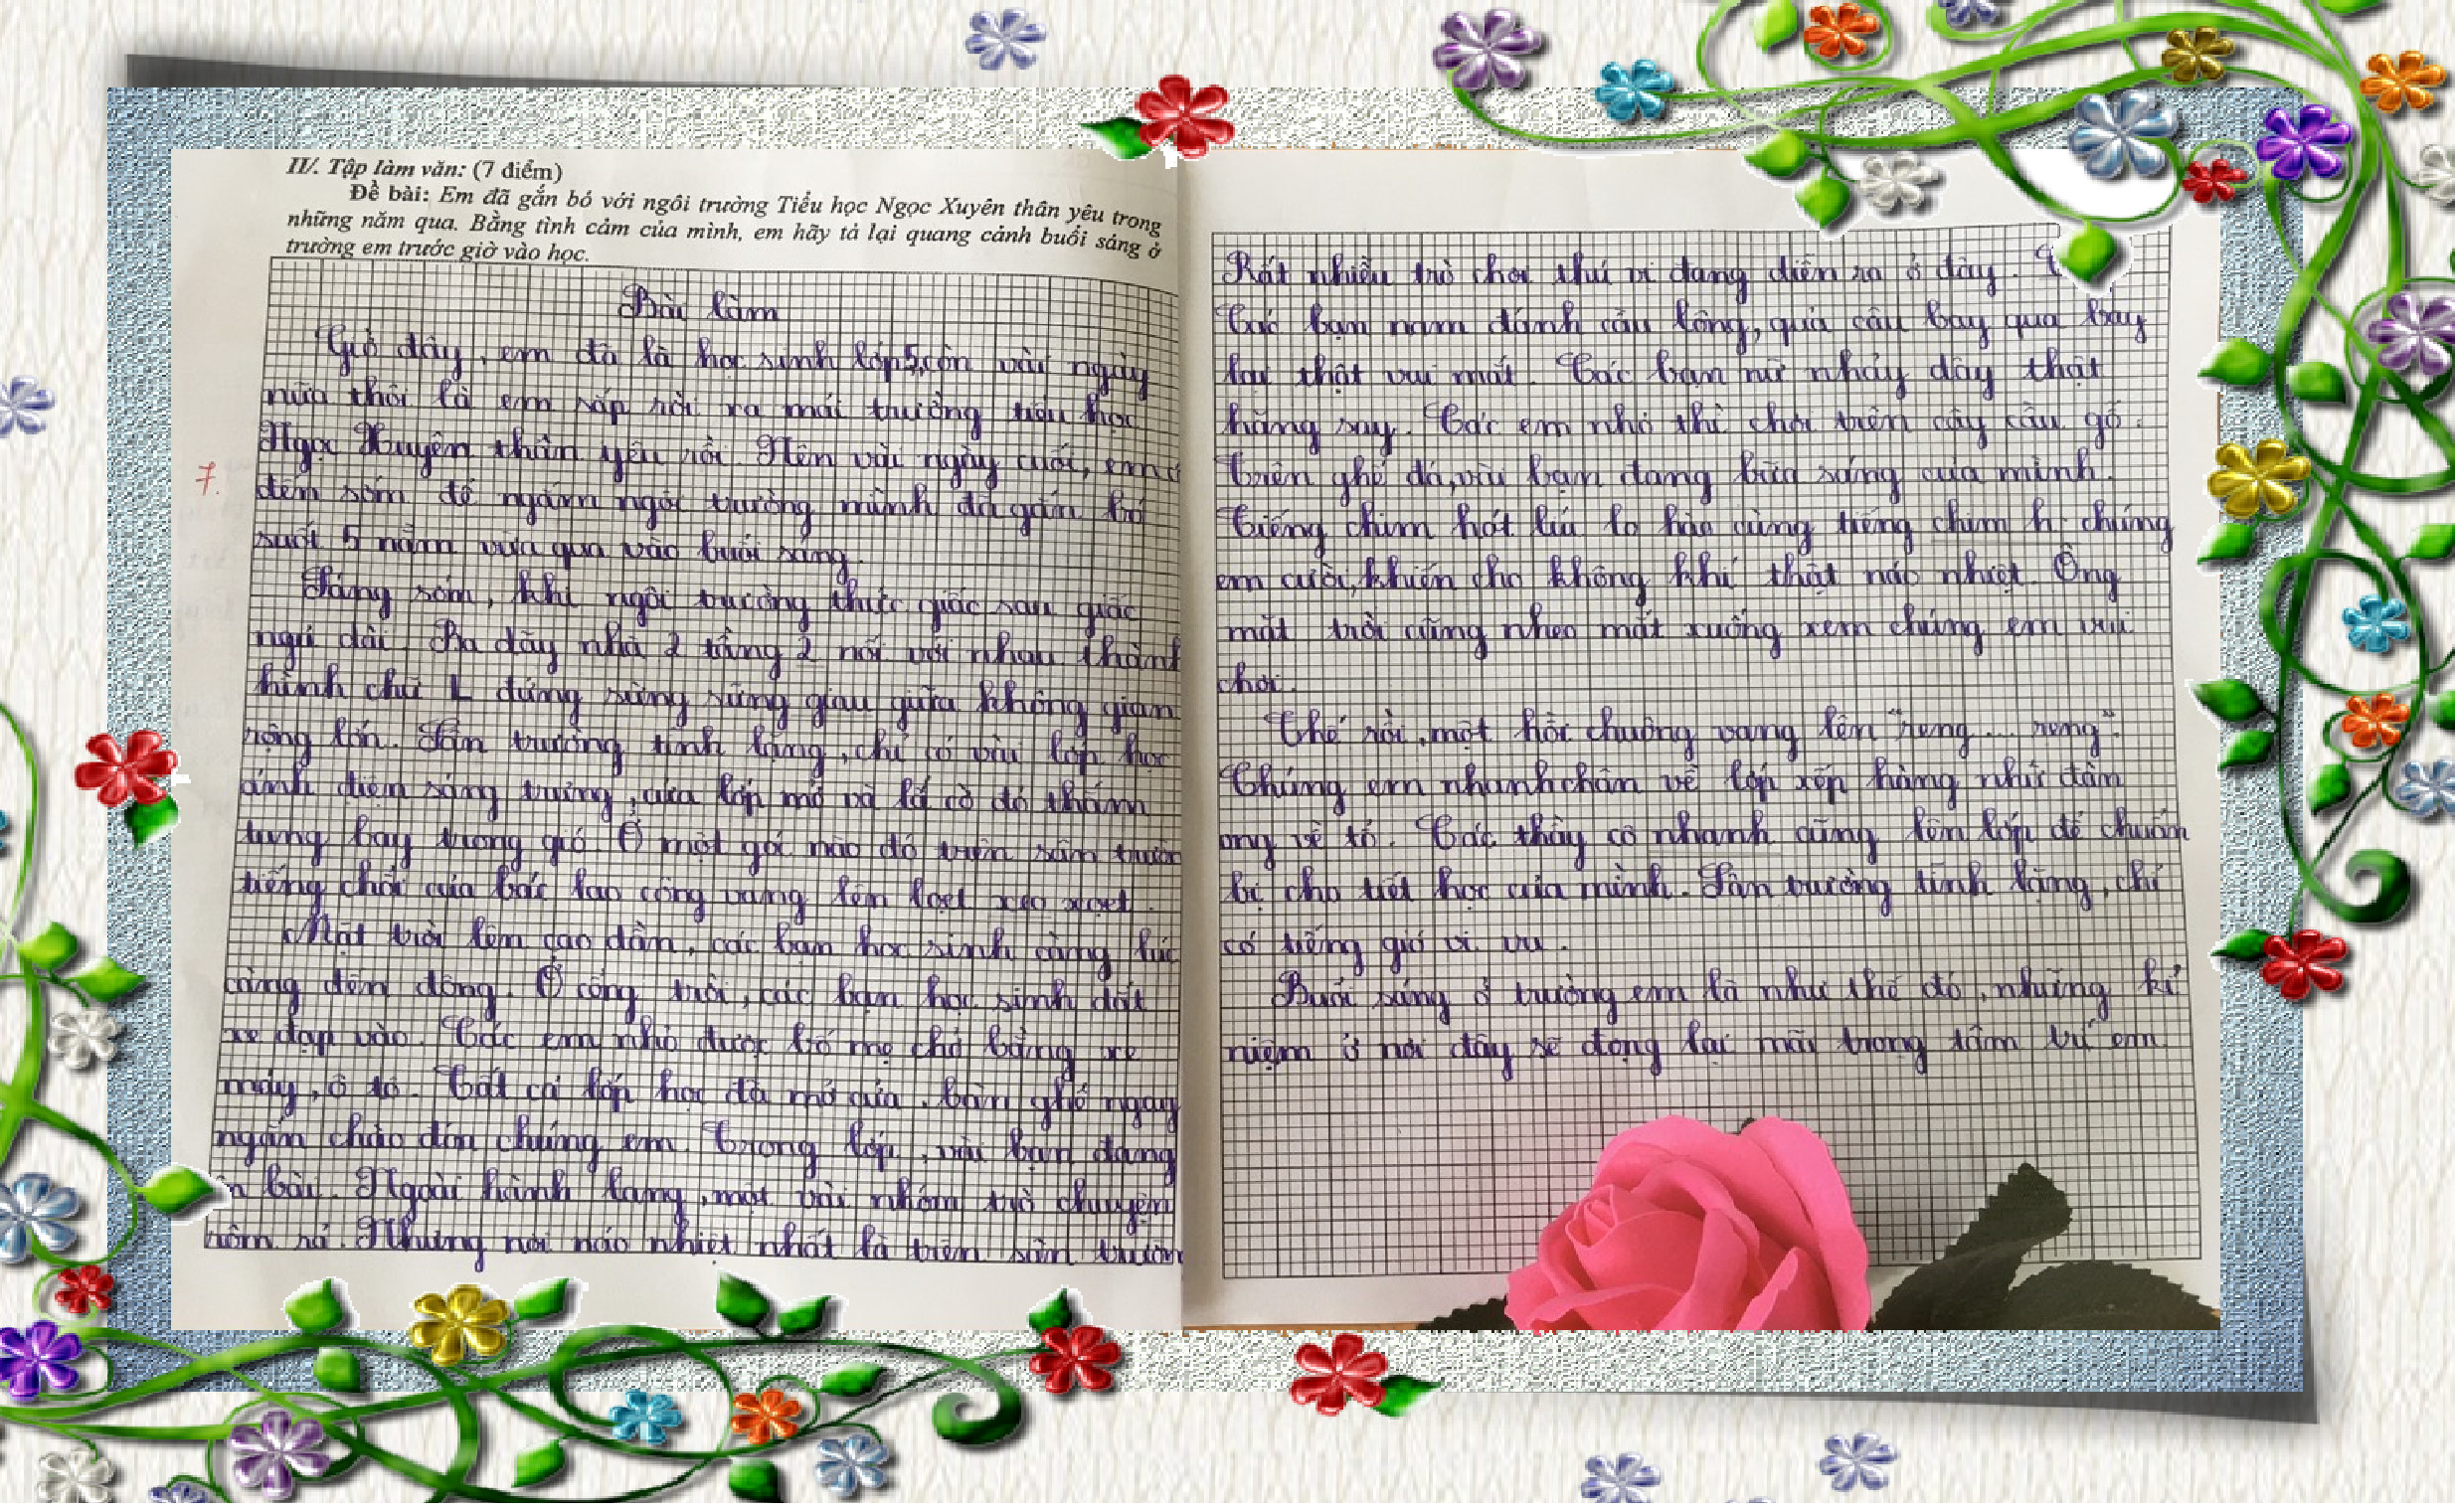 II/. Tập làm văn: (7 điểm)
Đề bài: Em đã gắn bó với ngôi trường Tiểu học Ngọc Xuyên thân yêu trong
những năm qua. Bằng tình cảm của mình, em hãy tả lại quang cảnh buổi sáng ở
trường em trước giờ vào học.
Bài làm
Giờ đây, em đã là học sinh lớp 5, còn vài ngày
nữa thôi là em sắp rời xa mái trường tiểu học
Ngọc Xuyên thân yêu rồi. Nên vài ngày cuối, em
7.
đến sớm để ngắm ngôi trường mình đã gắn bó
suốt 5 năm vừa qua vào buổi sáng.
Sáng sớm, khi ngôi trường thức giấc sau giấc
ngủ dài. Ba dãy nhà 2 tầng 2 nối với nhau thành
hình chữ L đứng sừng sững giau giữa không gian
rộng lớn. Sân trường tĩnh lặng, chỉ có vài lớp học
ánh điện sáng trưng, cửa lớp mở và lá cờ đỏ thắm
tung bay trong gió. Ở một góc nào đó trên sân trườn
tiếng chổi của bác lao công vang lên loẹt xẹo xoẹt.
Mặt trời lên cao dần, các bạn học sinh càng lúc
càng đến đông. Ở cổng trời, các bạn học sinh dắt
xe đạp vào. Các em nhỏ được bố mẹ chở bằng xe
máy, ô tô. Tất cả lớp học đã mở cửa, bàn ghế ngay
ngắn chào đón chúng em. Trong lớp, vài bạn đang
ôn bài. Ngoài hành lang, một vài nhóm trò chuyện
rôm rả. Nhưng nơi náo nhiệt nhất là trên sân trườn
Rất nhiều trò chơi thú vị đang diễn ra ở đây.
Các bạn nam đánh cầu lông, quả cầu bay qua bay
lại thật vui mắt. Các bạn nữ nhảy dây thật
hăng say. Các em nhỏ thì chơi trên cây cầu gỗ.
Trên ghế đá, vài bạn đang bữa sáng của mình.
Tiếng chim hót líu lo hòa cùng tiếng chim h chúng
em cười, khiến cho không khí thật náo nhiệt. Ông
mặt trời cũng nheo mắt xuống xem chúng em vui
chơi.
Thế rồi, một hồi chuông vang lên "reng... reng".
Chúng em nhanh chân về lớp xếp hàng như đàn
ong về tổ. Các thầy cô nhanh cũng lên lớp để chuẩn
bị cho tiết học của mình. Sân trường tĩnh lặng, chỉ
có tiếng gió vi vu.
Buổi sáng ở trường em là như thế đó, những kỉ
niệm ở nơi đây sẽ đọng lại mãi trong tâm trí em